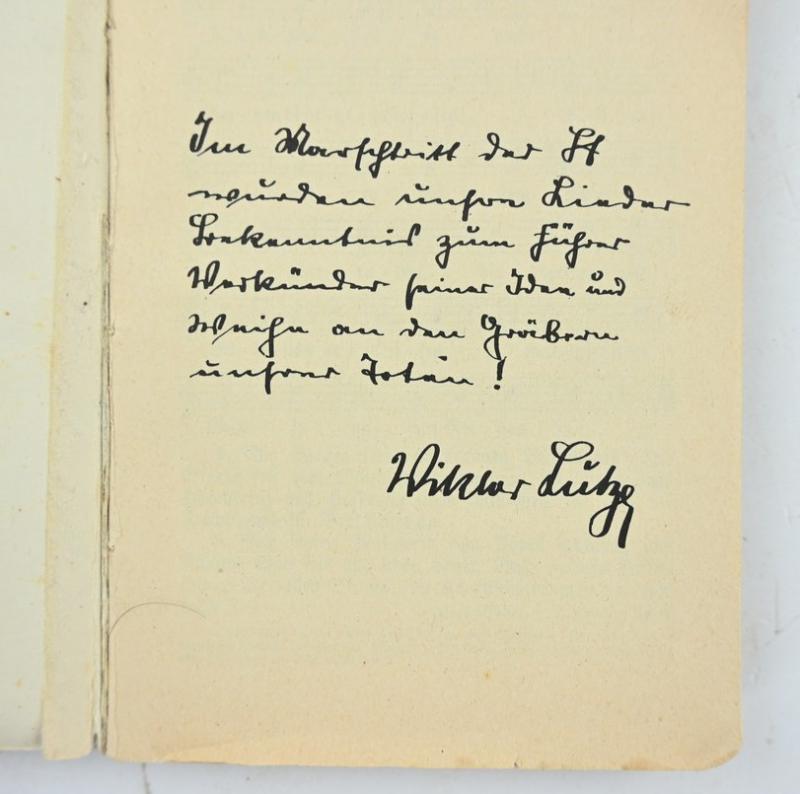 Im Marschtritt der SA
wurden unsre Lieder
Bekenntnis zum Führer
Verkünder seiner Idee und
Weihe an den Gräbern
unsrer Toten!
Viktor Lutze